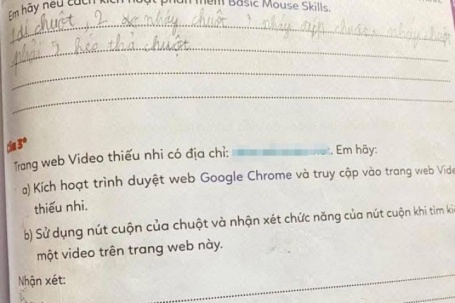 Em hãy nêu cách kích hoạt phần mềm Basic Mouse Skills.
chuột 2 nháy chuột nháy chuột nháy chuột
phải 5 kéo thả chuột
Câu 3*
Trang web Video thiếu nhi có địa chỉ: . Em hãy:
a) Kích hoạt trình duyệt web Google Chrome và truy cập vào trang web Vide
thiếu nhi.
b) Sử dụng nút cuộn của chuột và nhận xét chức năng của nút cuộn khi tìm ki
một video trên trang web này.
Nhận xét: